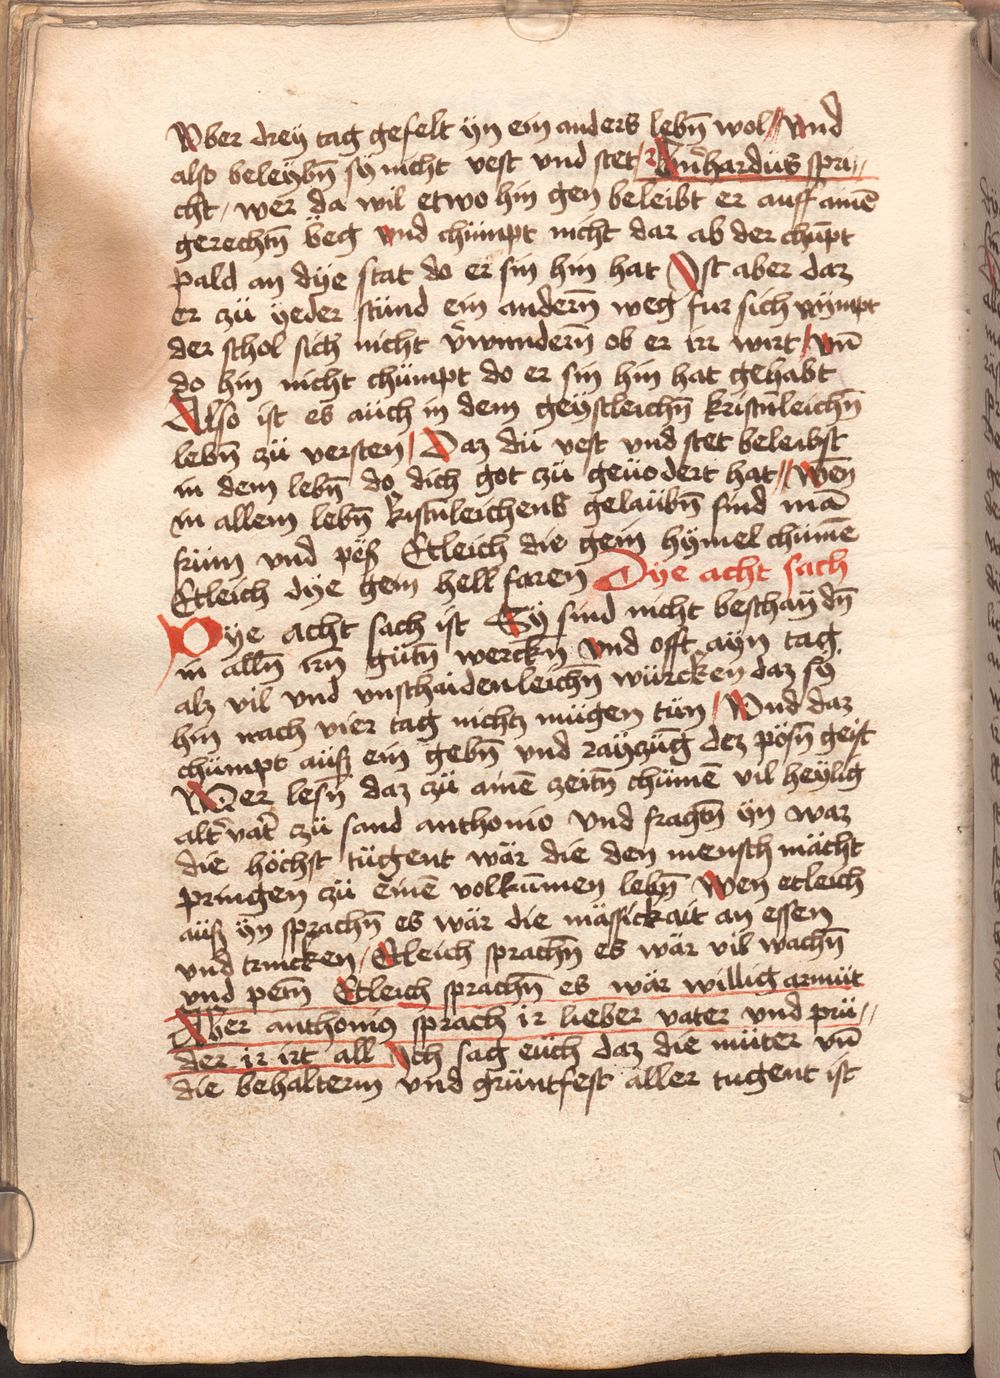 Vber drey tag gefelt yn ein anders lebn̄ wol // Vnd
also beleybn̄ sy nicht vest vnd stet / hardus spri//
cht / wer da wil etwo hin gen beleibt er auff ainē
gerechtn̄ beg vnd chümpt nicht dar ab der chūpt
pald an dye stat do er sin hin hat Ist aber daz
er zü yeder stünd ein andern̄ weg für sich nympt
der schol sich nicht v̄wundern̄ ob er irr wirt / vn̄
do hin nicht chümpt do er sin hin hat gehabt
Also ist es aüch in dem geystleichn̄ kristn̄leichn̄
lebn̄ zü versten / Daz dü vest vnd stet beleibst
in dem lebn̄ do dich got zü geüodert hat // Wen̄
in allem lebn̄ kristn̄leichens gelaübn̄ sind mā
frūm vnd pöß Etleich die gein hymel chümē
Etleich dye gein hell faren Dye acht sach
Dye acht sach ist Sy sind nicht beschaydn̄
in alln̄ irn̄ gütn̄ werckn̄ vnd offt ayn tag
alz vil vnd vnschaidenleichn̄ würcken daz sy
hin nach vier tag nichtz mügen tün / Vnd daz
chümpt aüß ein gebn̄ vnd rayzüg dez pösn̄ geist
Wer lesn̄ daz zü ainē zeitn̄ chümē vil heylig
alt̄ vät̄ zü sand anthonio vnd fragtn̄ yn waz
die höchst tügent wär die den mensch mächt
pringen zü einē volkūmen lebn̄ Wen etleich
aüß yn sprachn̄ es wär die mässickait an essen
vnd trincken / Etleich sprachn̄ es wär vil wachn̄
vnd petn̄ Etleich sprachn̄ es wär willig armüt
Aber anthonius sprach ir lieber vater vnd prü//
der ir irt all Ich sag eüch daz die müter vn̄
die behalterin vnd grüntfest aller tugent ist